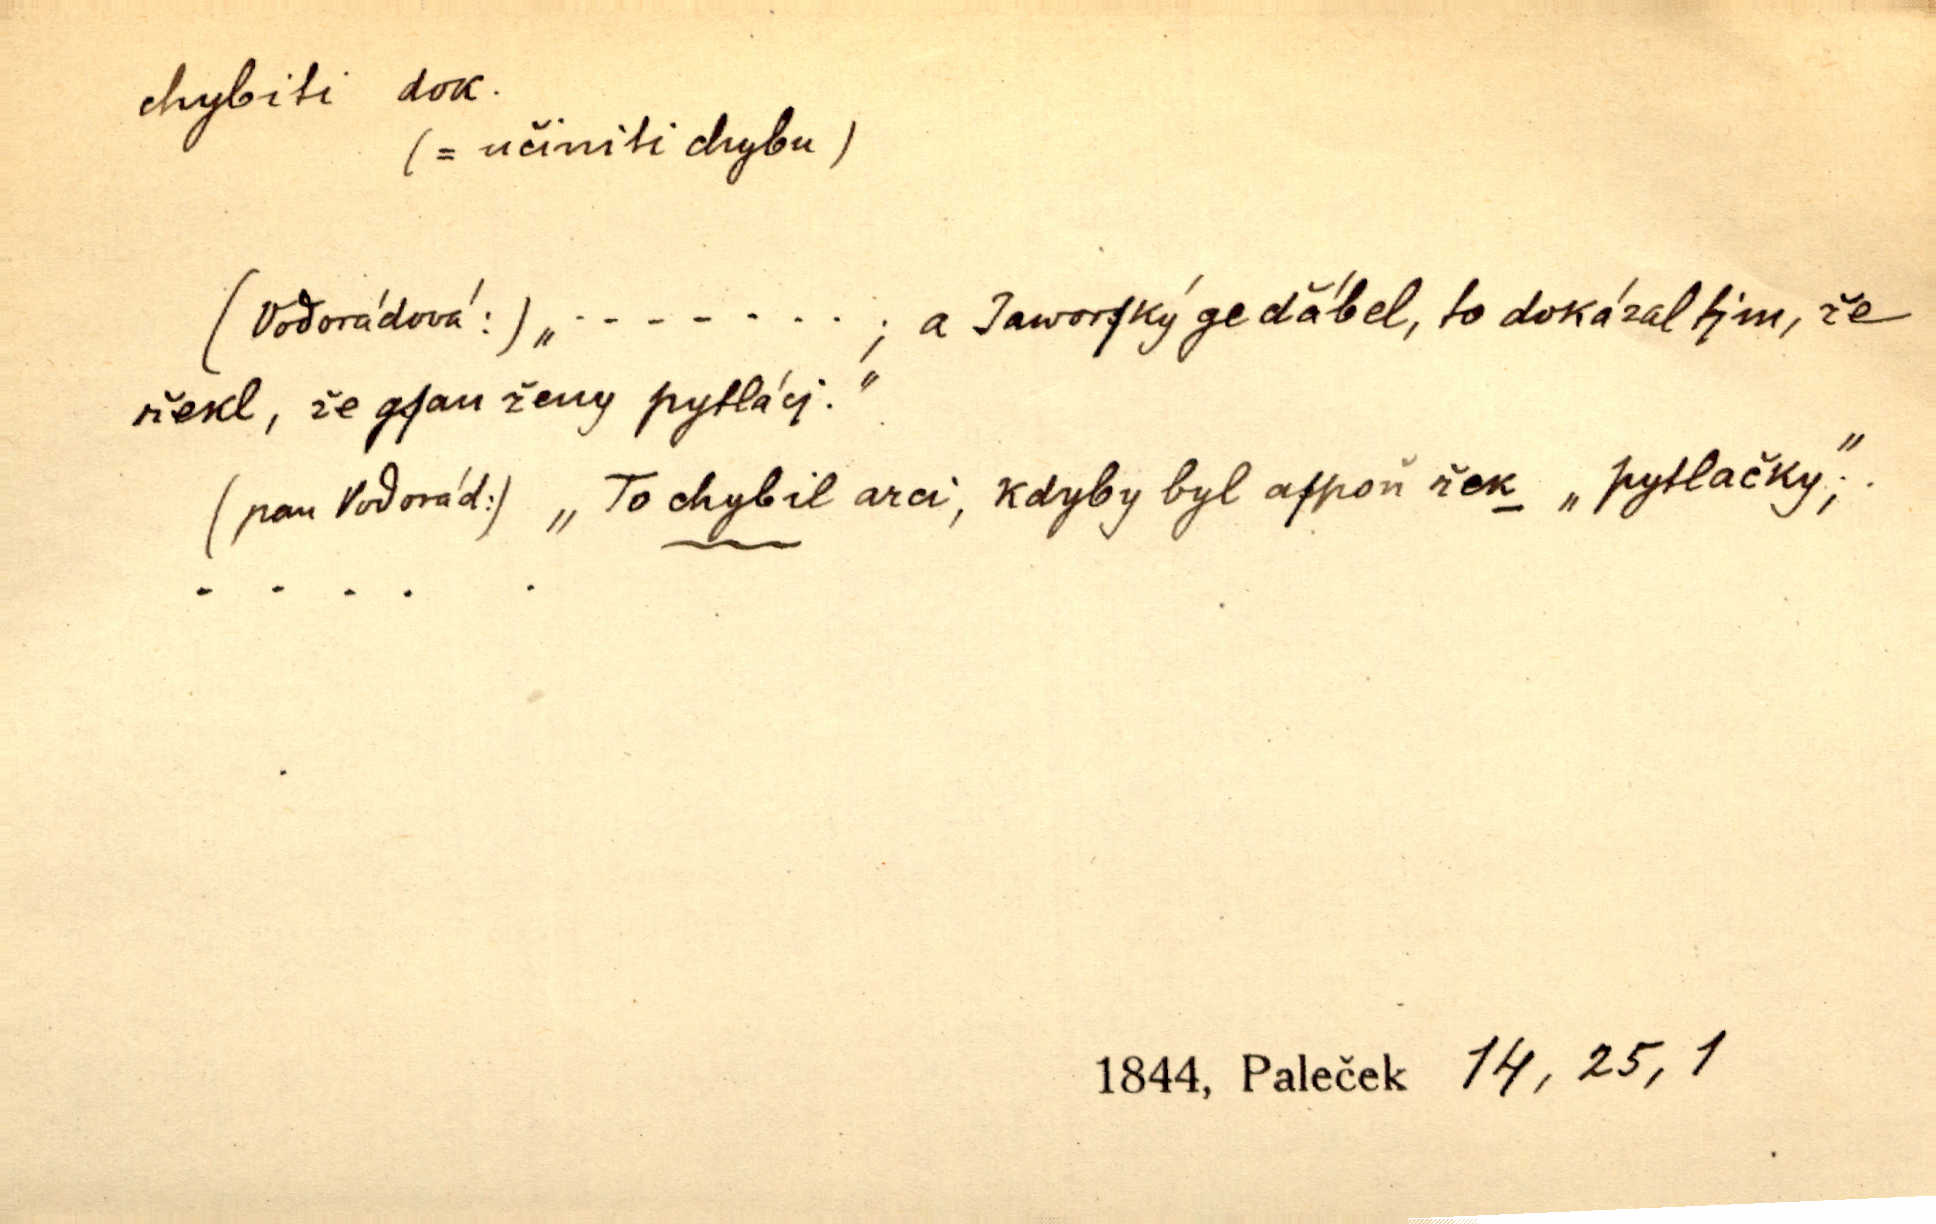 chybiti dok.
(= učiniti chybu)
(Voďorádová:) „ - - - - - - - - ; a Jaworſký ge ďábel, to dokázal tjm, že
řekl, že gſau ženy pytláci."
(pan Voďorád:) „To chybil arci, kdyby byl aſpoň řek „pytlačky";.
- - - - -
1844, Paleček 14, 25, 1